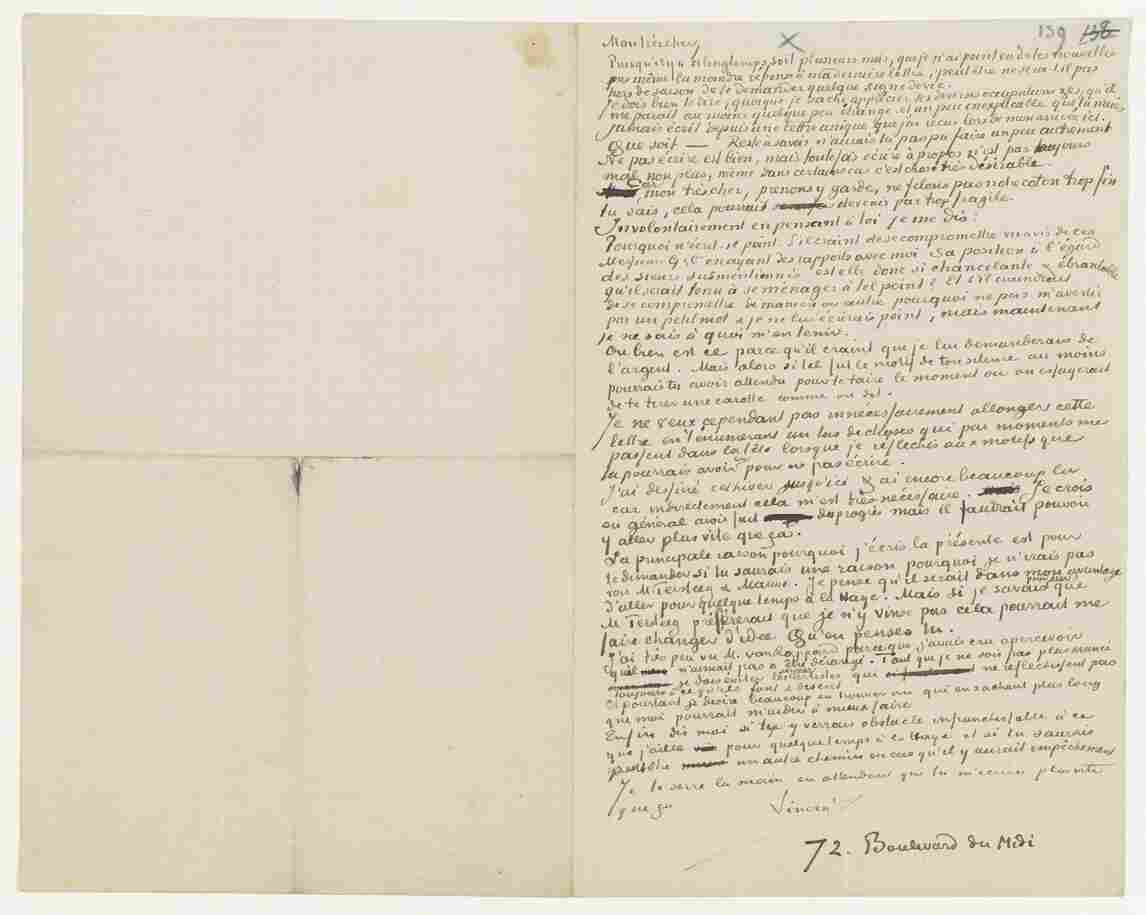 159 138
Mon très cher,
Puisqu'il y a si longtemps soit plusieurs mois, que je n'ai point eu de tes nouvelles
pas même la moindre réponse à ma dernière lettre, peut être ne sera-t-il pas
hors de saison de te demander quelque signe de vie.
Je dois bien te dire, quoique je sache apprécier tes diverses occupations &c, qu'il
me parait au moins quelque peu étrange et un peu inexplicable que tu n'aies
jamais écrit depuis une lettre unique que j'ai reçue lors de mon arrivée ici.
Que soit — Reste à savoir n'aurais tu pas pu faire un peu autrement
Ne pas écrire est bien, mais toutefois écrire à propos n'est pas toujours
mal non plus, même dans certains cas c'est chose très désirable.
Car, mon très cher, prenons y garde, ne filons pas notre coton trop fin
tu sais, cela pourrait devenir par trop fragile.
Involontairement en pensant à toi je me dis:
Pourquoi n'écrit-il point. S'il craint de se compromettre vis à vis de ces
Messieurs G & Cie en ayant des rapports avec moi Sa position à l'égard
des sieurs susmentionnés est elle donc si chancelante & ébranlable
qu'il serait tenu à se ménager à tel point? Et s'il craindrait
de se compromettre de manière ou autre pourquoi ne pas m'avertir
par un petit mot & je ne lui écrirais point, mais maintenant
je ne sais à quoi m'en tenir.
Ou bien est ce parce qu'il craint que je lui demanderais de
l'argent. Mais alors si tel fut le motif de ton silence au moins
pourrais tu avoir attendu pour te taire le moment où on essayerait
de te tirer une carotte comme on dit.
Je ne veux cependant pas innécessairement allonger cette
lettre en t'énumérant un tas de choses qui par moments me
passent dans la tête lorsque je réfléchis aux motifs que
tu pourrais avoir pour ne pas écrire.
J'ai dessiné cet hiver jusqu'ici & ai encore beaucoup lu
car indirectement cela m'est très nécessaire. Je crois
en général avoir fait des progrès mais il faudrait pouvoir
y aller plus vite que ça.
La principale raison pourquoi j'écris la présente est pour
te demander si tu saurais une raison pourquoi je n'irais pas
voir M Tersteeg & Mauve. Je pense qu'il serait dans mon avantage
d'aller pour quelque temps à la Haye. Mais si je savais que
M Tersteeg préférerait que je n'y vinse pas cela pourrait me
faire changer d'idée Qu'en penses tu.
J'ai très peu vu M. van Rappard parce que j'avais cru apercevoir
qu'il n'aimait pas à être dérangé. Tant que je ne sois pas plus avancé
je dois éviter les jeunes artistes qui ne réfléchissent pas
toujours à ce qu'ils font & disent
Et pourtant je désire beaucoup en trouver un qui en sachant plus long
que moi pourrait m'aider à mieux faire
Enfin dis moi si tu y verrais obstacle infranchissable à ce
que j'aille pour quelque temps à la Haye et si tu saurais
peut être un autre chemin en cas qu'il y aurait empêchement
Je te serre la main en attendant que tu m'écrives plus vite
que ça
Vincent
72. Boulevard du Midi